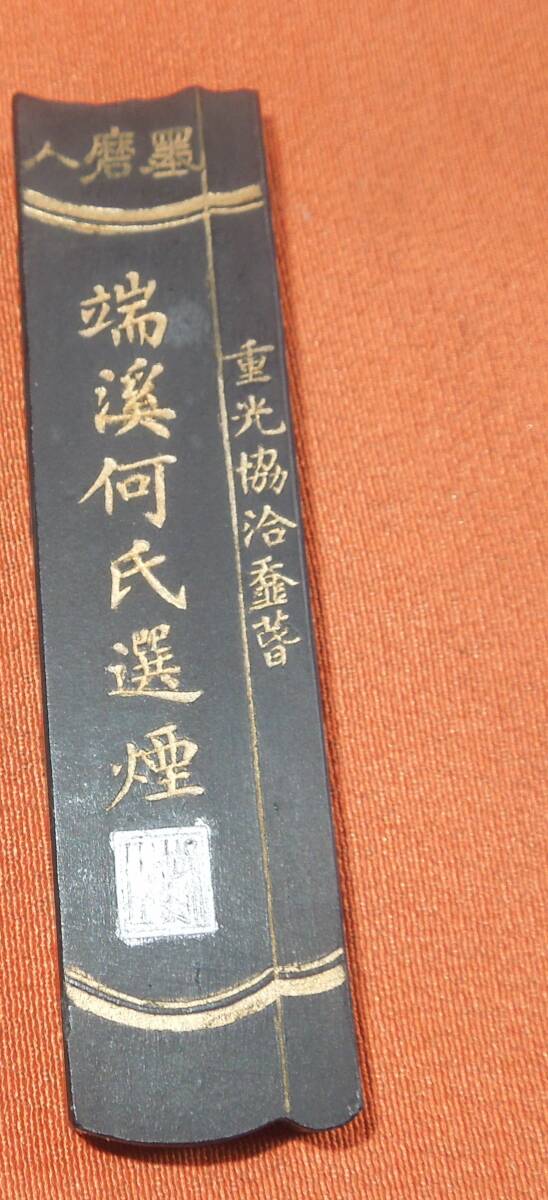 墨磨人
重光協洽萅
端溪何氏選煙